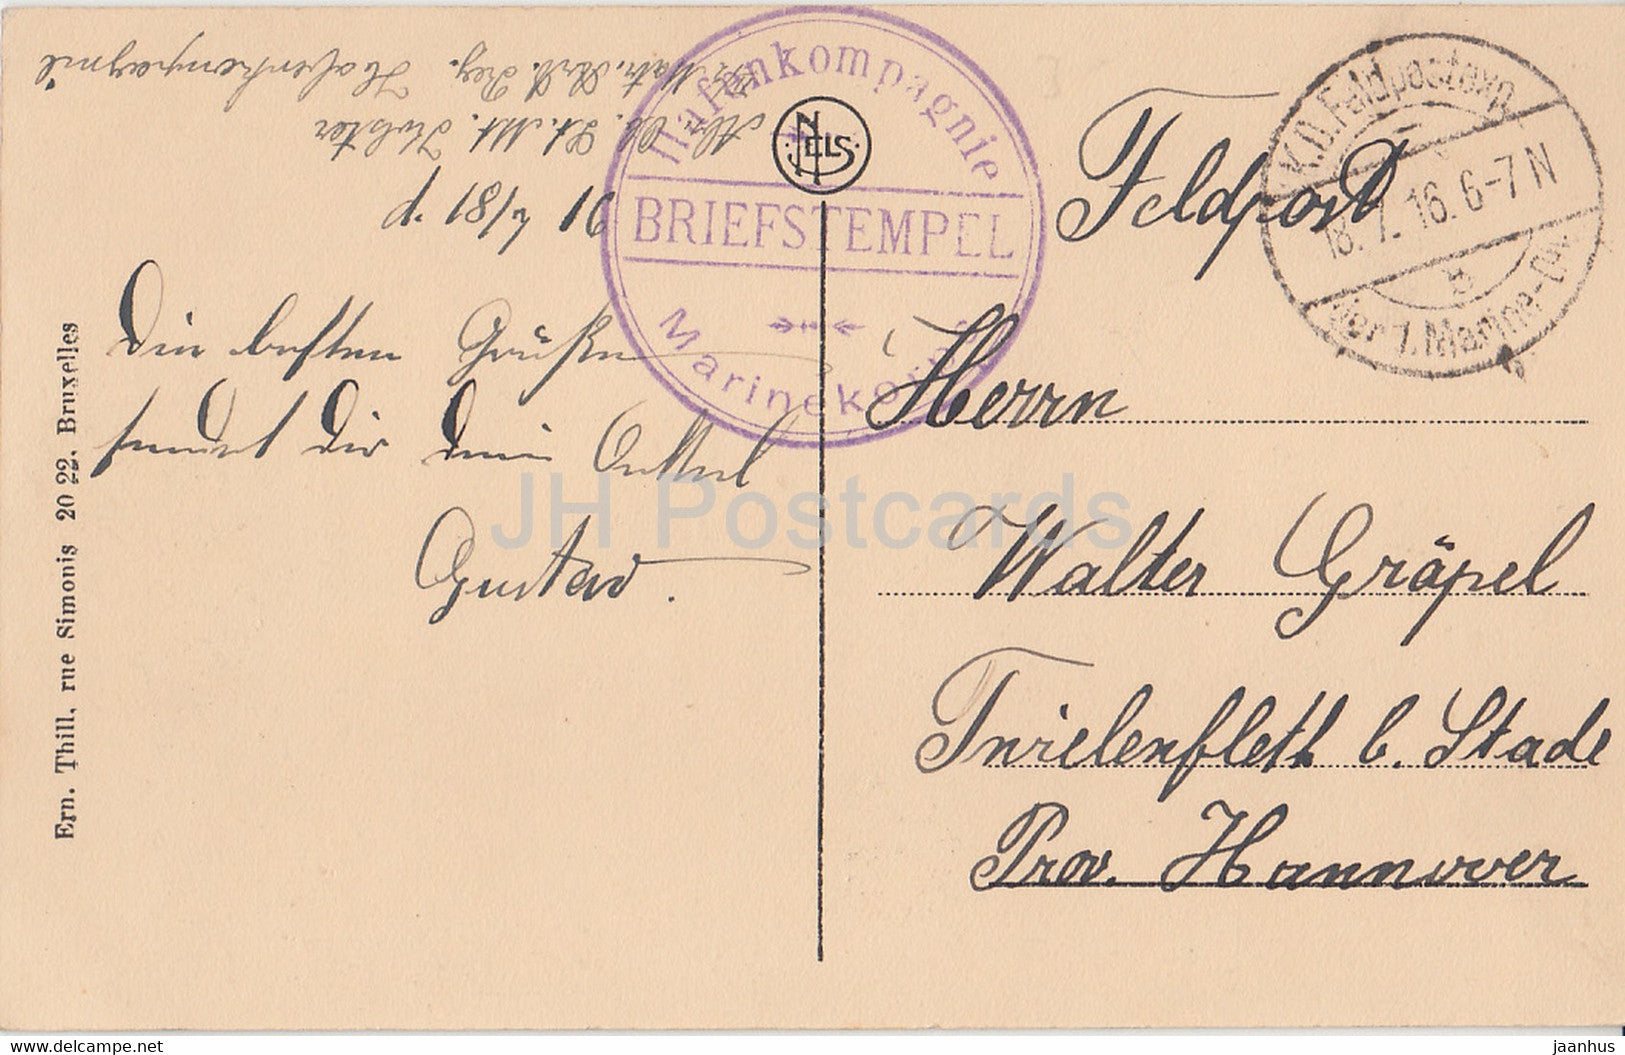 Hafenkompagnie
BRIEFSTEMPEL
Marinekorps
NELS
Feldpost
K.D. Feldpostexp.
18. 7. 16. 6-7 N
der 1. Marine-Div.
b
91 4/81 p.
Hafenkompagnie
Die besten Grüße
sendet Dir Dein Onkel
Gustav.
Herrn
Walter Gräpel
Twielenfleth b. Stade
Prov. Hannover
Ern. Thill, rue Simonis 20 22, Bruxelles
JH Postcards
www.delcampe.net
jaanhus